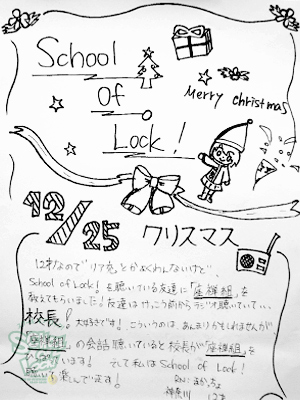 School
Of
Lock!
Merry christmas
12/25 クリスマス
12才なので"リア友"とかよくわんないけど、
School of Lock! を聴いている友達に「座禅組」を
教えてもらいました! 友達はけっこう前からラジオ聴いていて、、
校長! 大好きです! こういうのは、あんまりかもしれませんが
「座禅組」の会話聴いていると校長が「座禅組」を
います! そして私は School of Lock!
聴いて 楽しんでます!
RN:
神奈川 12才